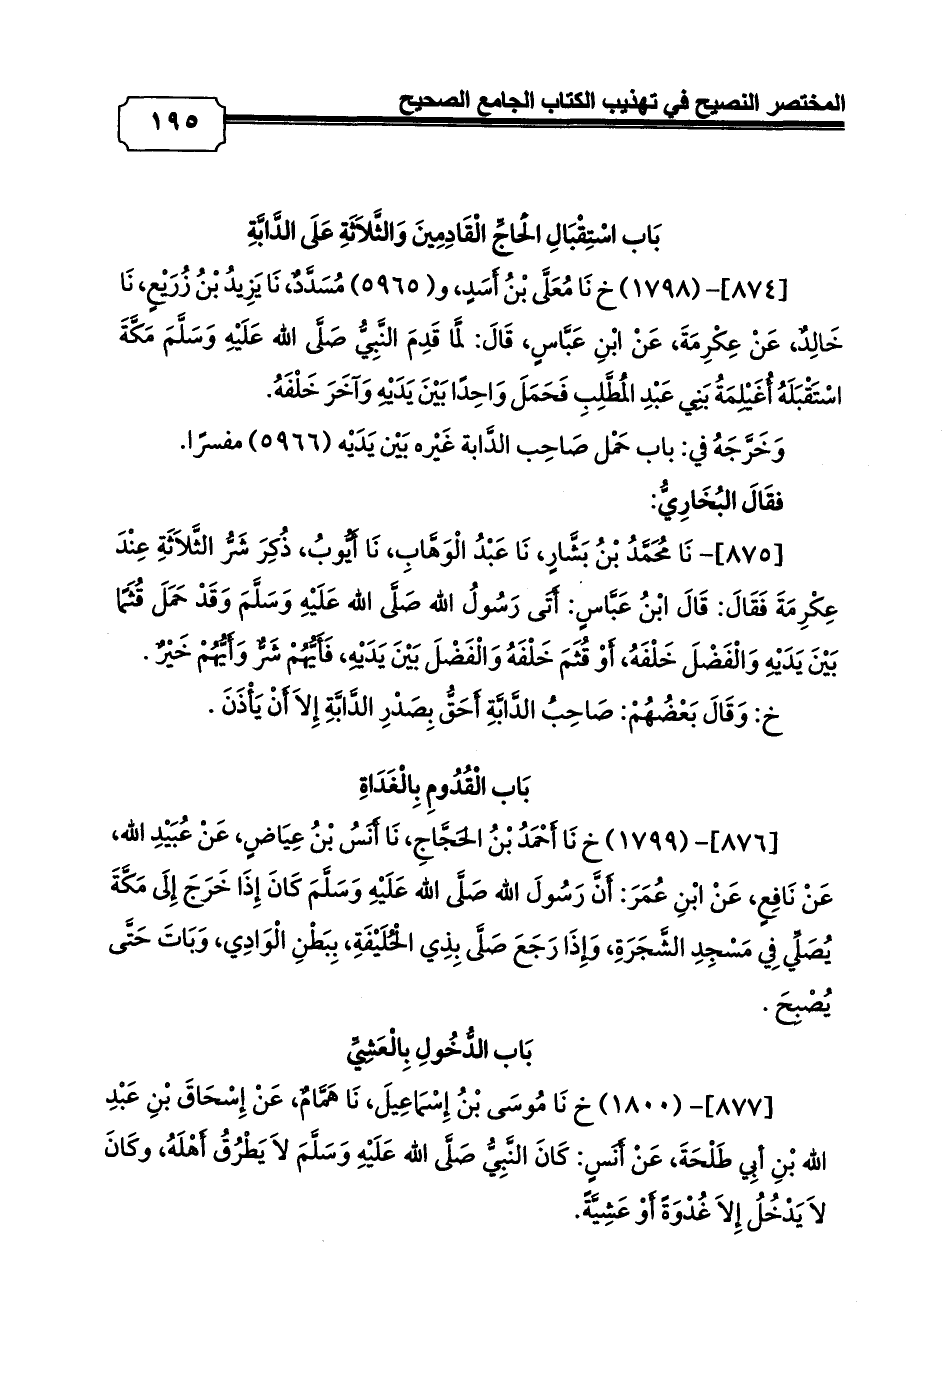 المختصر النصيح في تهذيب الكتاب الجامع الصحيح
١٩٥
بَاب اسْتِقْبَالِ الْحَاجِّ الْقَادِمِينَ وَالثَّلَاثَةِ عَلَى الدَّابَّةِ
[٨٧٤]- (١٧٩٨) خ نَا مُعَلَّى بْنُ أَسَدٍ، و(٥٩٦٥) مُسَدَّدٌ، نَا يَزِيدُ بْنُ زُرَيْعٍ، نَا
خَالِدٌ، عَنْ عِكْرِمَةَ، عَنْ ابْنِ عَبَّاسٍ، قَالَ: لَمَّا قَدِمَ النَّبِيُّ صَلَّى الله عَلَيْهِ وَسَلَّمَ مَكَّةَ
اسْتَقْبَلَهُ أُغَيْلِمَةُ بَنِي عَبْدِ الْمُطَّلِبِ فَحَمَلَ وَاحِدًا بَيْنَ يَدَيْهِ وَآخَرَ خَلْفَهُ.
وَخَرَّجَهُ في: باب حَمْل صَاحِب الدَّابة غَيْره بَيْن يَدَيْه (٥٩٦٦) مفسرًا.
فقَالَ البُخَارِيُّ:
[٨٧٥]- نَا مُحَمَّدُ بْنُ بَشَّارٍ، نَا عَبْدُ الْوَهَّابِ، نَا أَيُّوبُ، ذُكِرَ شَرُّ الثَّلاَثَةِ عِنْدَ
عِكْرِمَةَ فَقَالَ: قَالَ ابْنُ عَبَّاسٍ: أَتَى رَسُولُ الله صَلَّى الله عَلَيْهِ وَسَلَّمَ وَقَدْ حَمَلَ قُثَمَ
بَيْنَ يَدَيْهِ وَالْفَضْلَ خَلْفَهُ، أَوْ قُثَمَ خَلْفَهُ وَالْفَضْلَ بَيْنَ يَدَيْهِ، فَأَيُّهُمْ شَرٌّ وَأَيُّهُمْ خَيْرٌ.
خ: وَقَالَ بَعْضُهُمْ: صَاحِبُ الدَّابَّةِ أَحَقُّ بِصَدْرِ الدَّابَّةِ إِلاَ أَنْ يَأْذَنَ.
بَاب الْقُدُومِ بِالْغَدَاةِ
[٨٧٦]- (١٧٩٩) خ نَا أَحْمَدُ بْنُ الحَجَّاجِ، نَا أَنَسُ بْنُ عِيَاضٍ، عَنْ عُبَيْدِ الله،
عَنْ نَافِعٍ، عَنْ ابْنِ عُمَرَ: أَنَّ رَسُولَ الله صَلَّى الله عَلَيْهِ وَسَلَّمَ كَانَ إِذَا خَرَجَ إِلَى مَكَّةَ
يُصَلِّي فِي مَسْجِدِ الشَّجَرَةِ، وَإِذَا رَجَعَ صَلَّى بِذِي الْحُلَيْفَةِ، بِبَطْنِ الْوَادِي، وَبَاتَ حَتَّى
يُصْبِحَ.
بَاب الدُّخُولِ بِالْعَشِيِّ
[٨٧٧]- (١٨٠٠) خ نَا مُوسَى بْنُ إِسْمَاعِيلَ، نَا هَمَّامٌ، عَنْ إِسْحَاقَ بْنِ عَبْدِ
الله بْنِ أبِي طَلْحَةَ، عَنْ أَنَسٍ: كَانَ النَّبِيُّ صَلَّى الله عَلَيْهِ وَسَلَّمَ لاَ يَطْرُقُ أَهْلَهُ، وكَانَ
لاَ يَدْخُلُ إِلاَ غُدْوَةً أَوْ عَشِيَّةً.